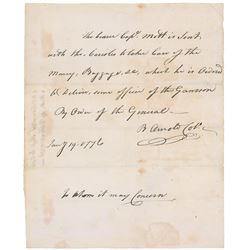 The bearer Capt. Mott is Sent
with the Carriols to take Care of the
Money, Baggage, &c, which he is Ordered
to deliver some officer of the Garrison
By Order of the General—
B Arnold Col.
Jany 19. 1776
To Whom it may Concern